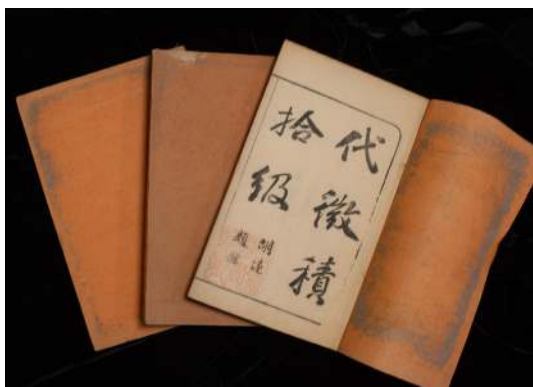 代微積
拾級